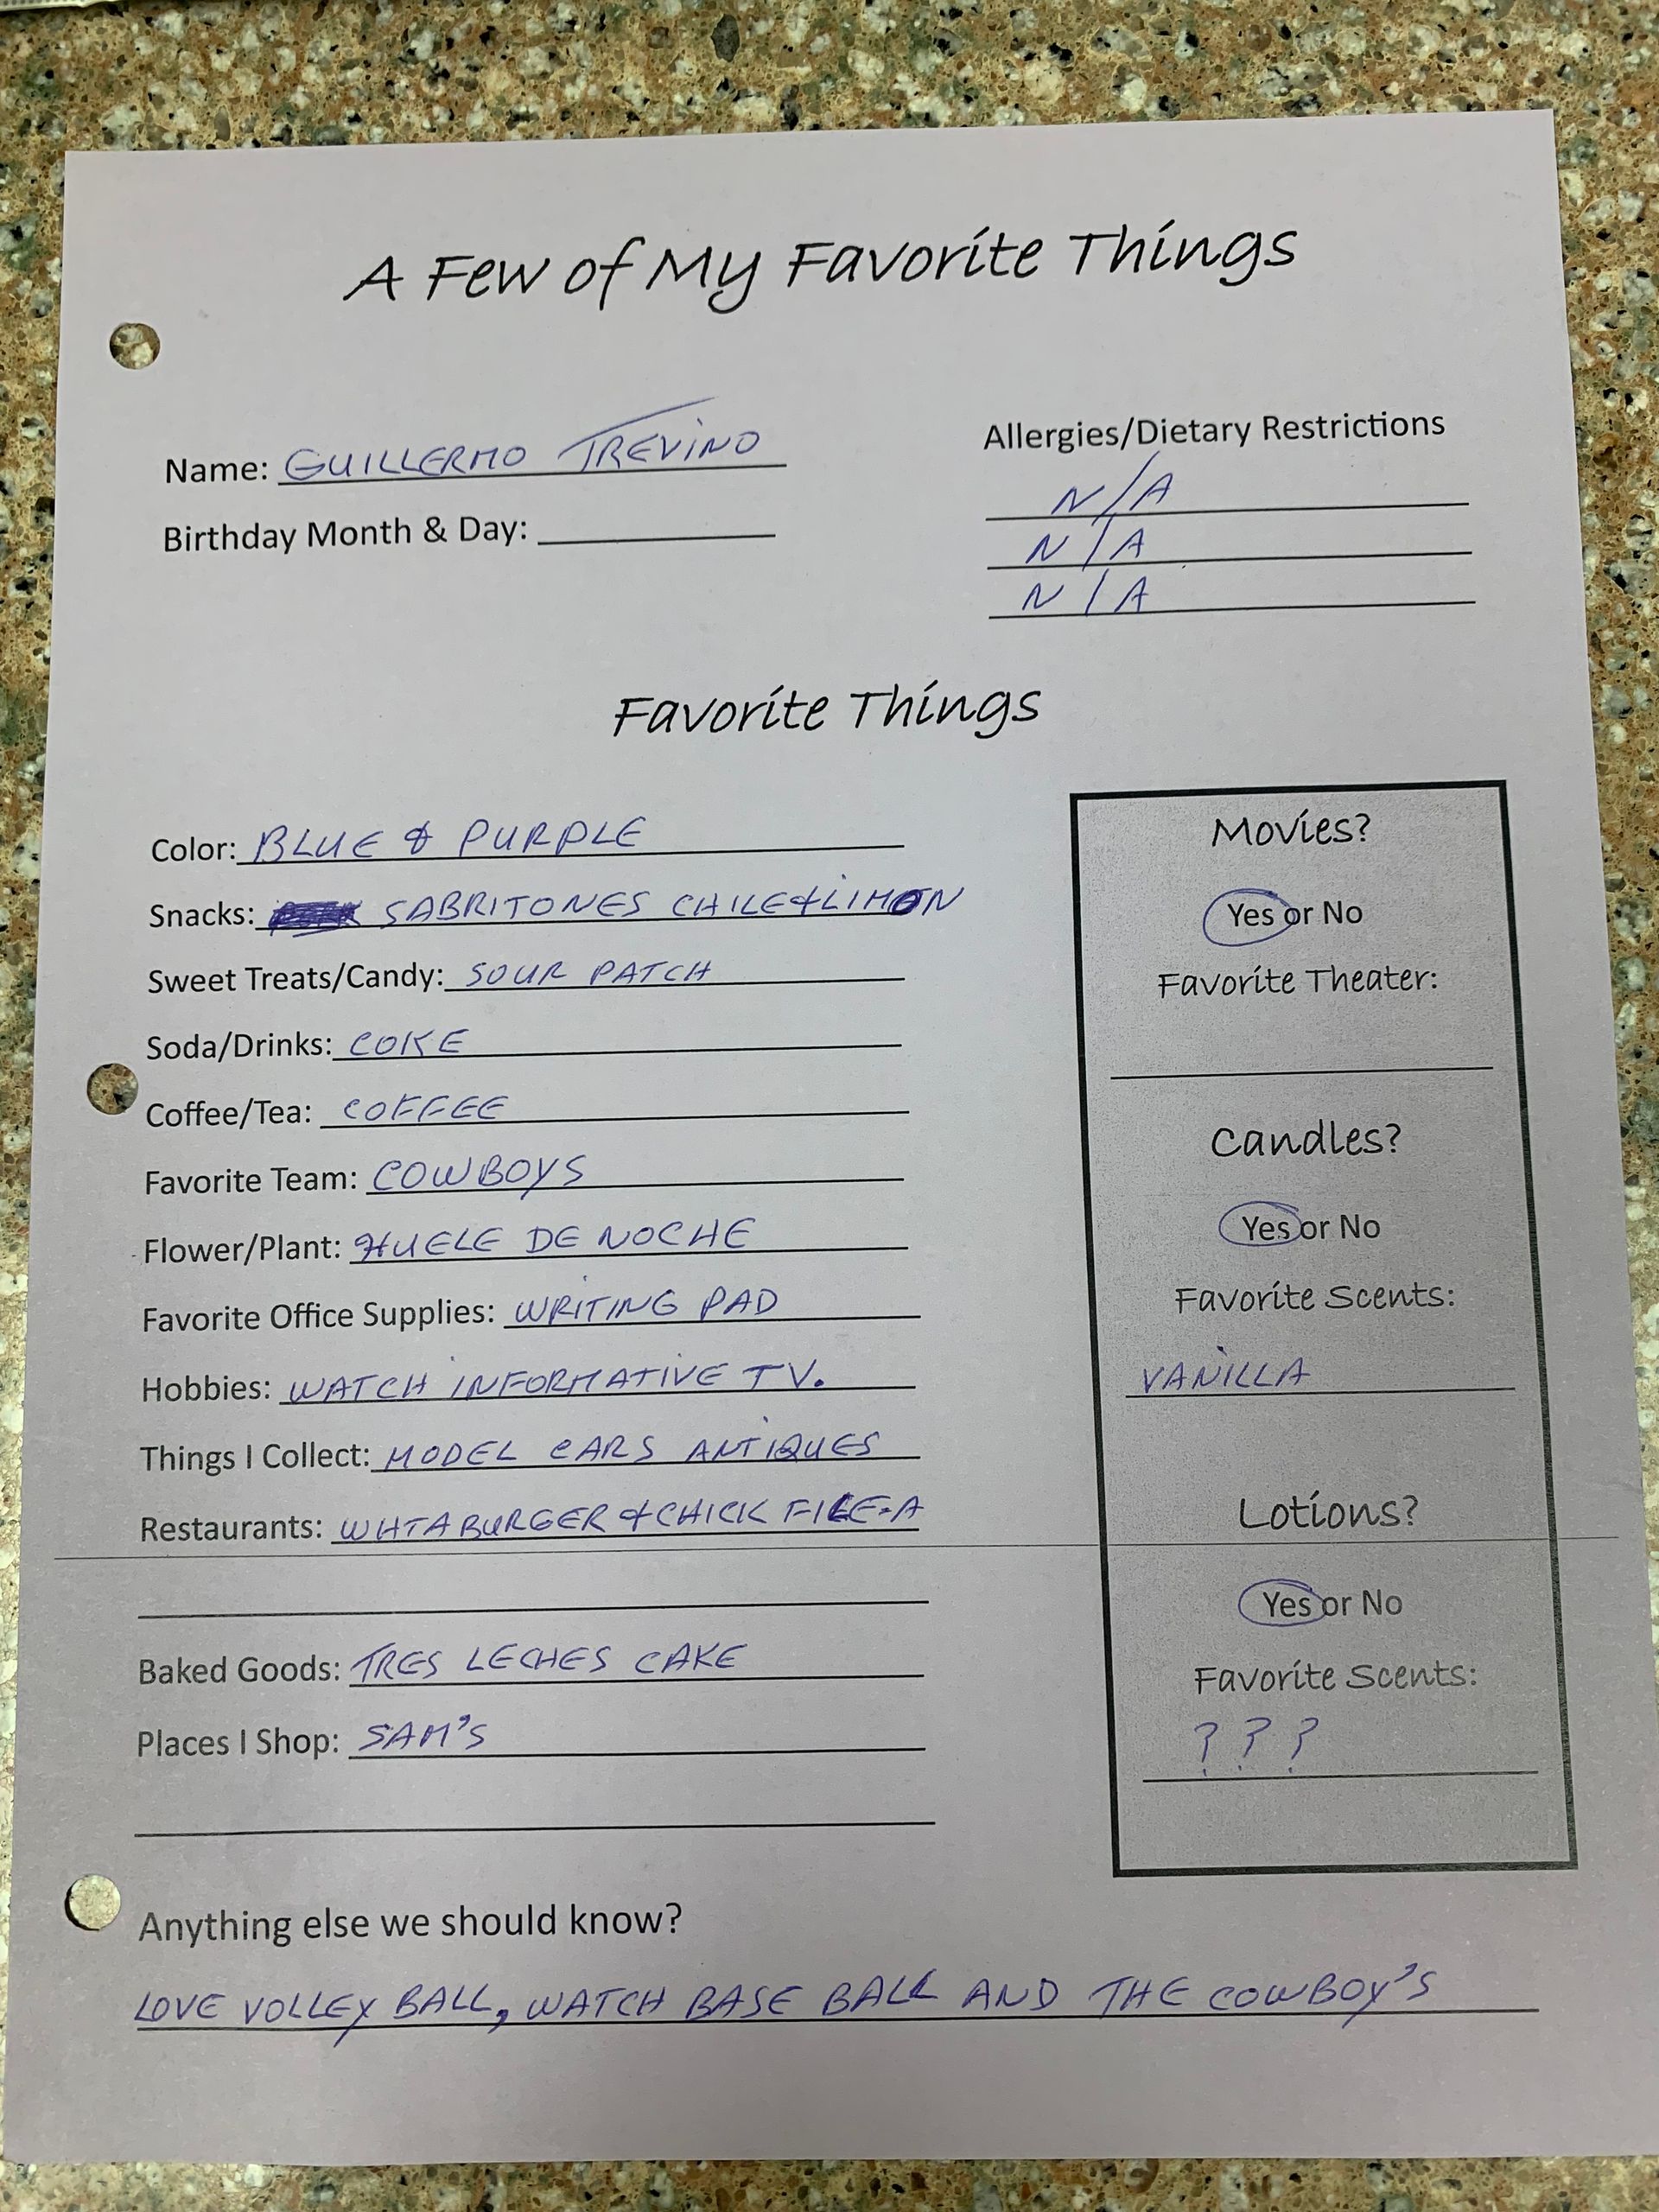 A Few of My Favorite Things
Name: GUILLERMO TREVINO
Birthday Month & Day:
Allergies/Dietary Restrictions
N/A
N/A
N/A
Favorite Things
Color: BLUE & PURPLE
Snacks: SABRITONES CHILE & LIMON
Sweet Treats/Candy: SOUR PATCH
Soda/Drinks: COKE
Coffee/Tea: COFFEE
Favorite Team: COWBOYS
Flower/Plant: HUELE DE NOCHE
Favorite Office Supplies: WRITING PAD
Hobbies: WATCH INFORMATIVE TV.
Things I Collect: MODEL CARS ANTIQUES
Restaurants: WHTABURGER & CHICK FILE-A
Baked Goods: TRES LECHES CAKE
Places I Shop: SAM'S
Movies?
Yes or No
Favorite Theater:
Candles?
Yes or No
Favorite Scents:
VANILLA
Lotions?
Yes or No
Favorite Scents:
? ? ?
Anything else we should know?
LOVE VOLLEY BALL, WATCH BASE BALL AND THE COWBOY'S